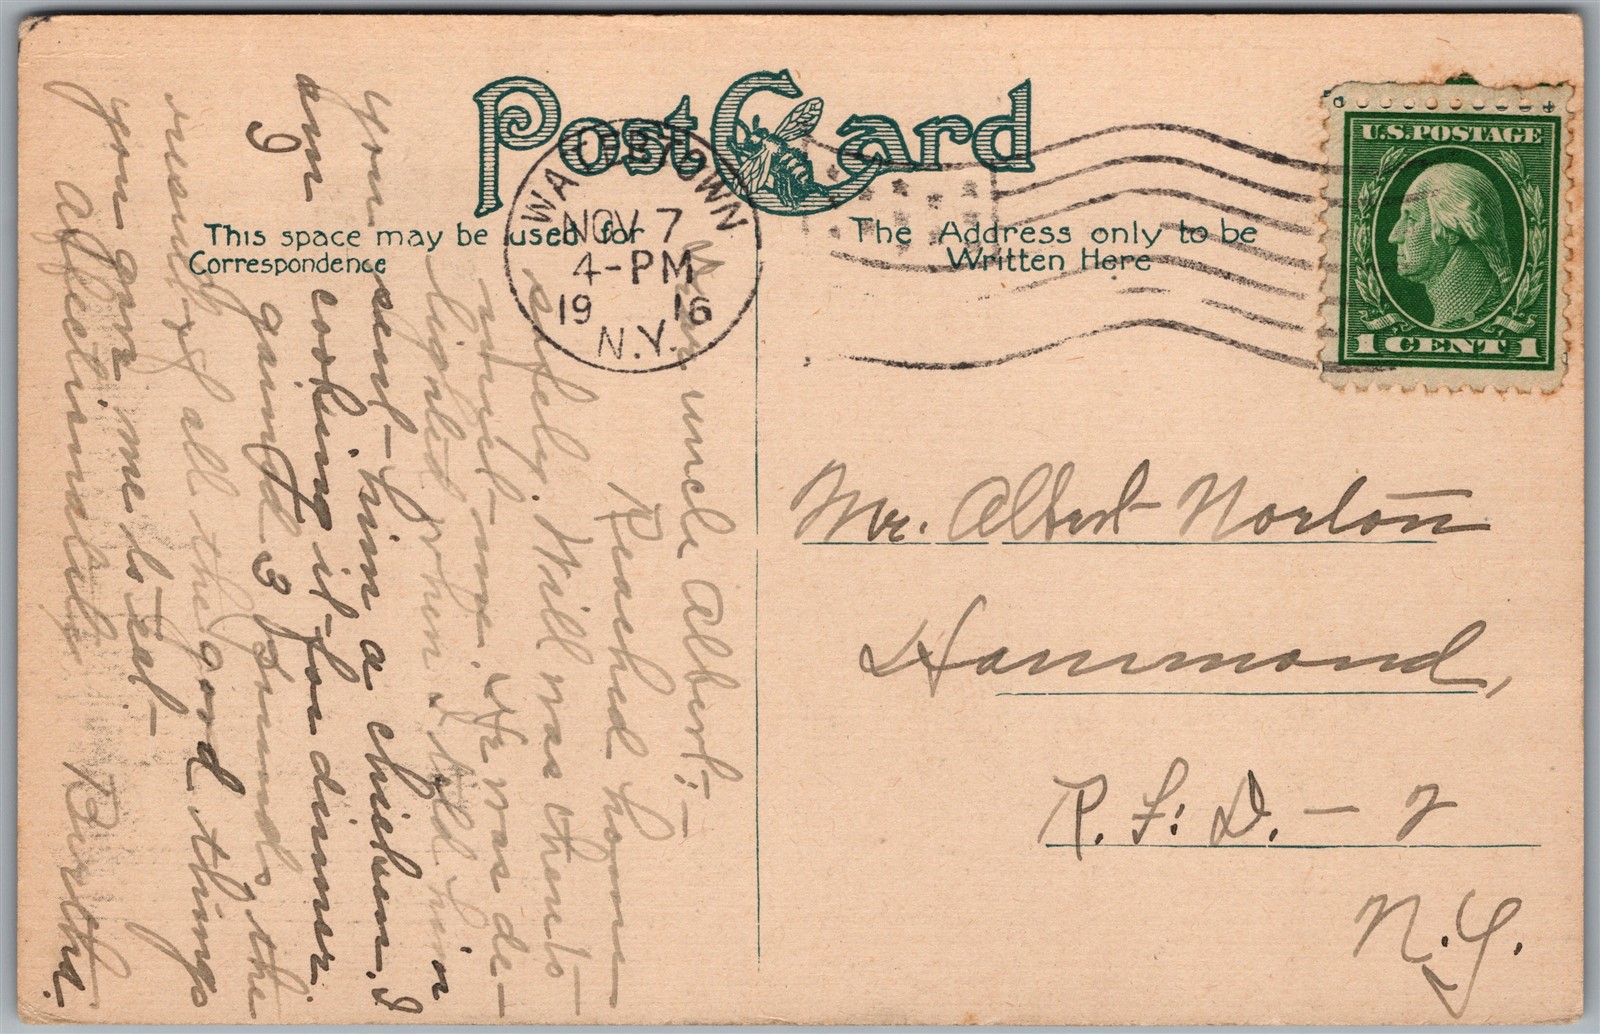 Post Card
This space may be used for
Correspondence
The Address only to be
Written Here
WATERTOWN
NOV 7
4-PM
1916
N.Y.
U.S. POSTAGE
1 CENT 1
Mr. Albert Norton
Hammond,
R. F. D. - 2
N.Y.
Dear uncle Albert:-
Reached home
safely. Will was there to
meet me. He was de-
lighted when I told him
you sent him a chicken. I
am cooking it for dinner.
I gained 3 pounds, the
result of all the good things
you gave me to eat-
Affectionately Bertha.